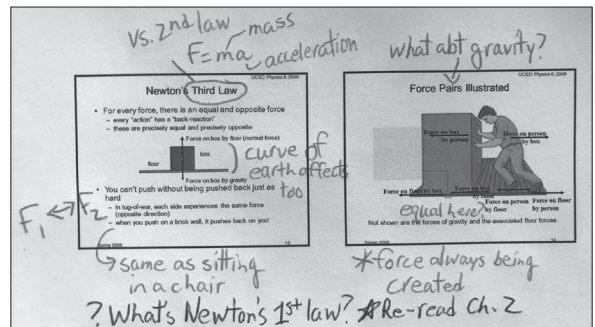 vs. 2nd law
mass
F=ma
acceleration
what abt gravity?
UCSD: Physics 8; 2006
Newton's Third Law
• For every force, there is an equal and opposite force
– every "action" has a "back-reaction"
– these are precisely equal and precisely opposite
Force on box by floor (normal force)
box
floor
Force on box by gravity
curve of
earth affects
too
• You can't push without being pushed back just as
hard
– in tug-of-war, each side experiences the same force
(opposite direction)
– when you push on a brick wall, it pushes back on you!
F1 ↔ F2
Spring 2006
→ same as sitting
in a chair
UCSD: Physics 8; 2006
Force Pairs Illustrated
Force on box
by person
Force on person
by box
Force on floor by box
Force on box
by floor
Force on person
by floor
Force on floor
by person
equal here?
Not shown are the forces of gravity and the associated floor forces
Spring 2006
*force always being
created
? What's Newton's 1st law?
*Re-read Ch. 2